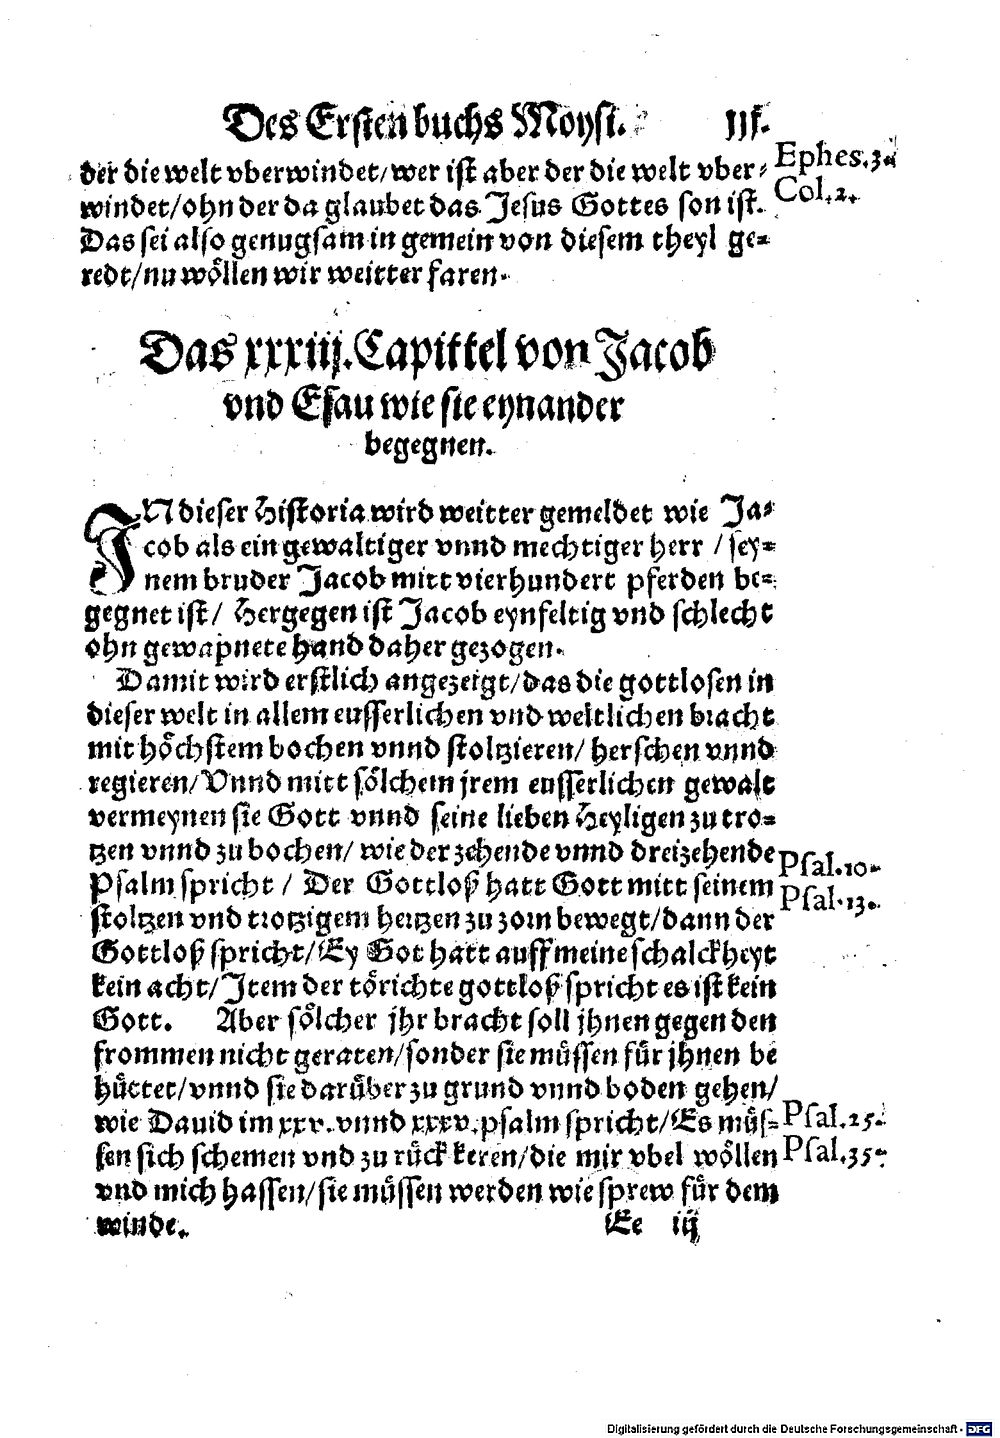 Des Ersten buchs Moysi. 111.
der die welt vberwindet/wer ist aber der die welt vber-
Ephes.3.
windet/ohn der da glaubet das Jesus Gottes son ist.
Col.2.
Das sei also genugsam in gemein von diesem theyl ge-
redt/nu wöllen wir weitter faren.
Das xxxiij. Capittel von Jacob
vnd Esau wie sie eynander
begegnen.
IN dieser Historia wird weitter gemeldet wie Ja-
cob als ein gewaltiger vnnd mechtiger herr / sey-
nem bruder Jacob mitt vierhundert pferden be-
gegnet ist/ Hergegen ist Jacob eynfeltig vnd schlecht
ohn gewapnete hand daher gezogen.
Damit wird erstlich angezeigt/das die gottlosen in
dieser welt in allem eusserlichen vnd weltlichen bracht
mit höchstem bochen vnnd stoltzieren/ herschen vnnd
regieren/Vnnd mitt sölchem jrem eusserlichen gewalt
vermeynen sie Gott vnnd seine lieben Heyligen zu tro-
tzen vnnd zu bochen/ wie der zehende vnnd dreizehende
Psal.10.
Psalm spricht / Der Gottloß hatt Gott mitt seinem
Psal.13.
stoltzen vnd trotzigem hertzen zu zorn bewegt/dann der
Gottloß spricht/Ey Got hatt auff meine schalckheyt
kein acht/Item der törichte gottloß spricht es ist kein
Gott. Aber sölcher jhr bracht soll jhnen gegen den
frommen nicht geraten/sonder sie müssen für jhnen be
hüttet/vnnd sie darüber zu grund vnnd boden gehen/
wie Dauid im xxv. vnnd xxxv. psalm spricht/Es müs-
Psal.25.
sen sich schemen vnd zu rück keren/die mir vbel wöllen
Psal.35.
vnd mich hassen/sie müssen werden wie sprew für dem
winde.
Ee iij
Digitalisierung gefördert durch die Deutsche Forschungsgemeinschaft - DFG